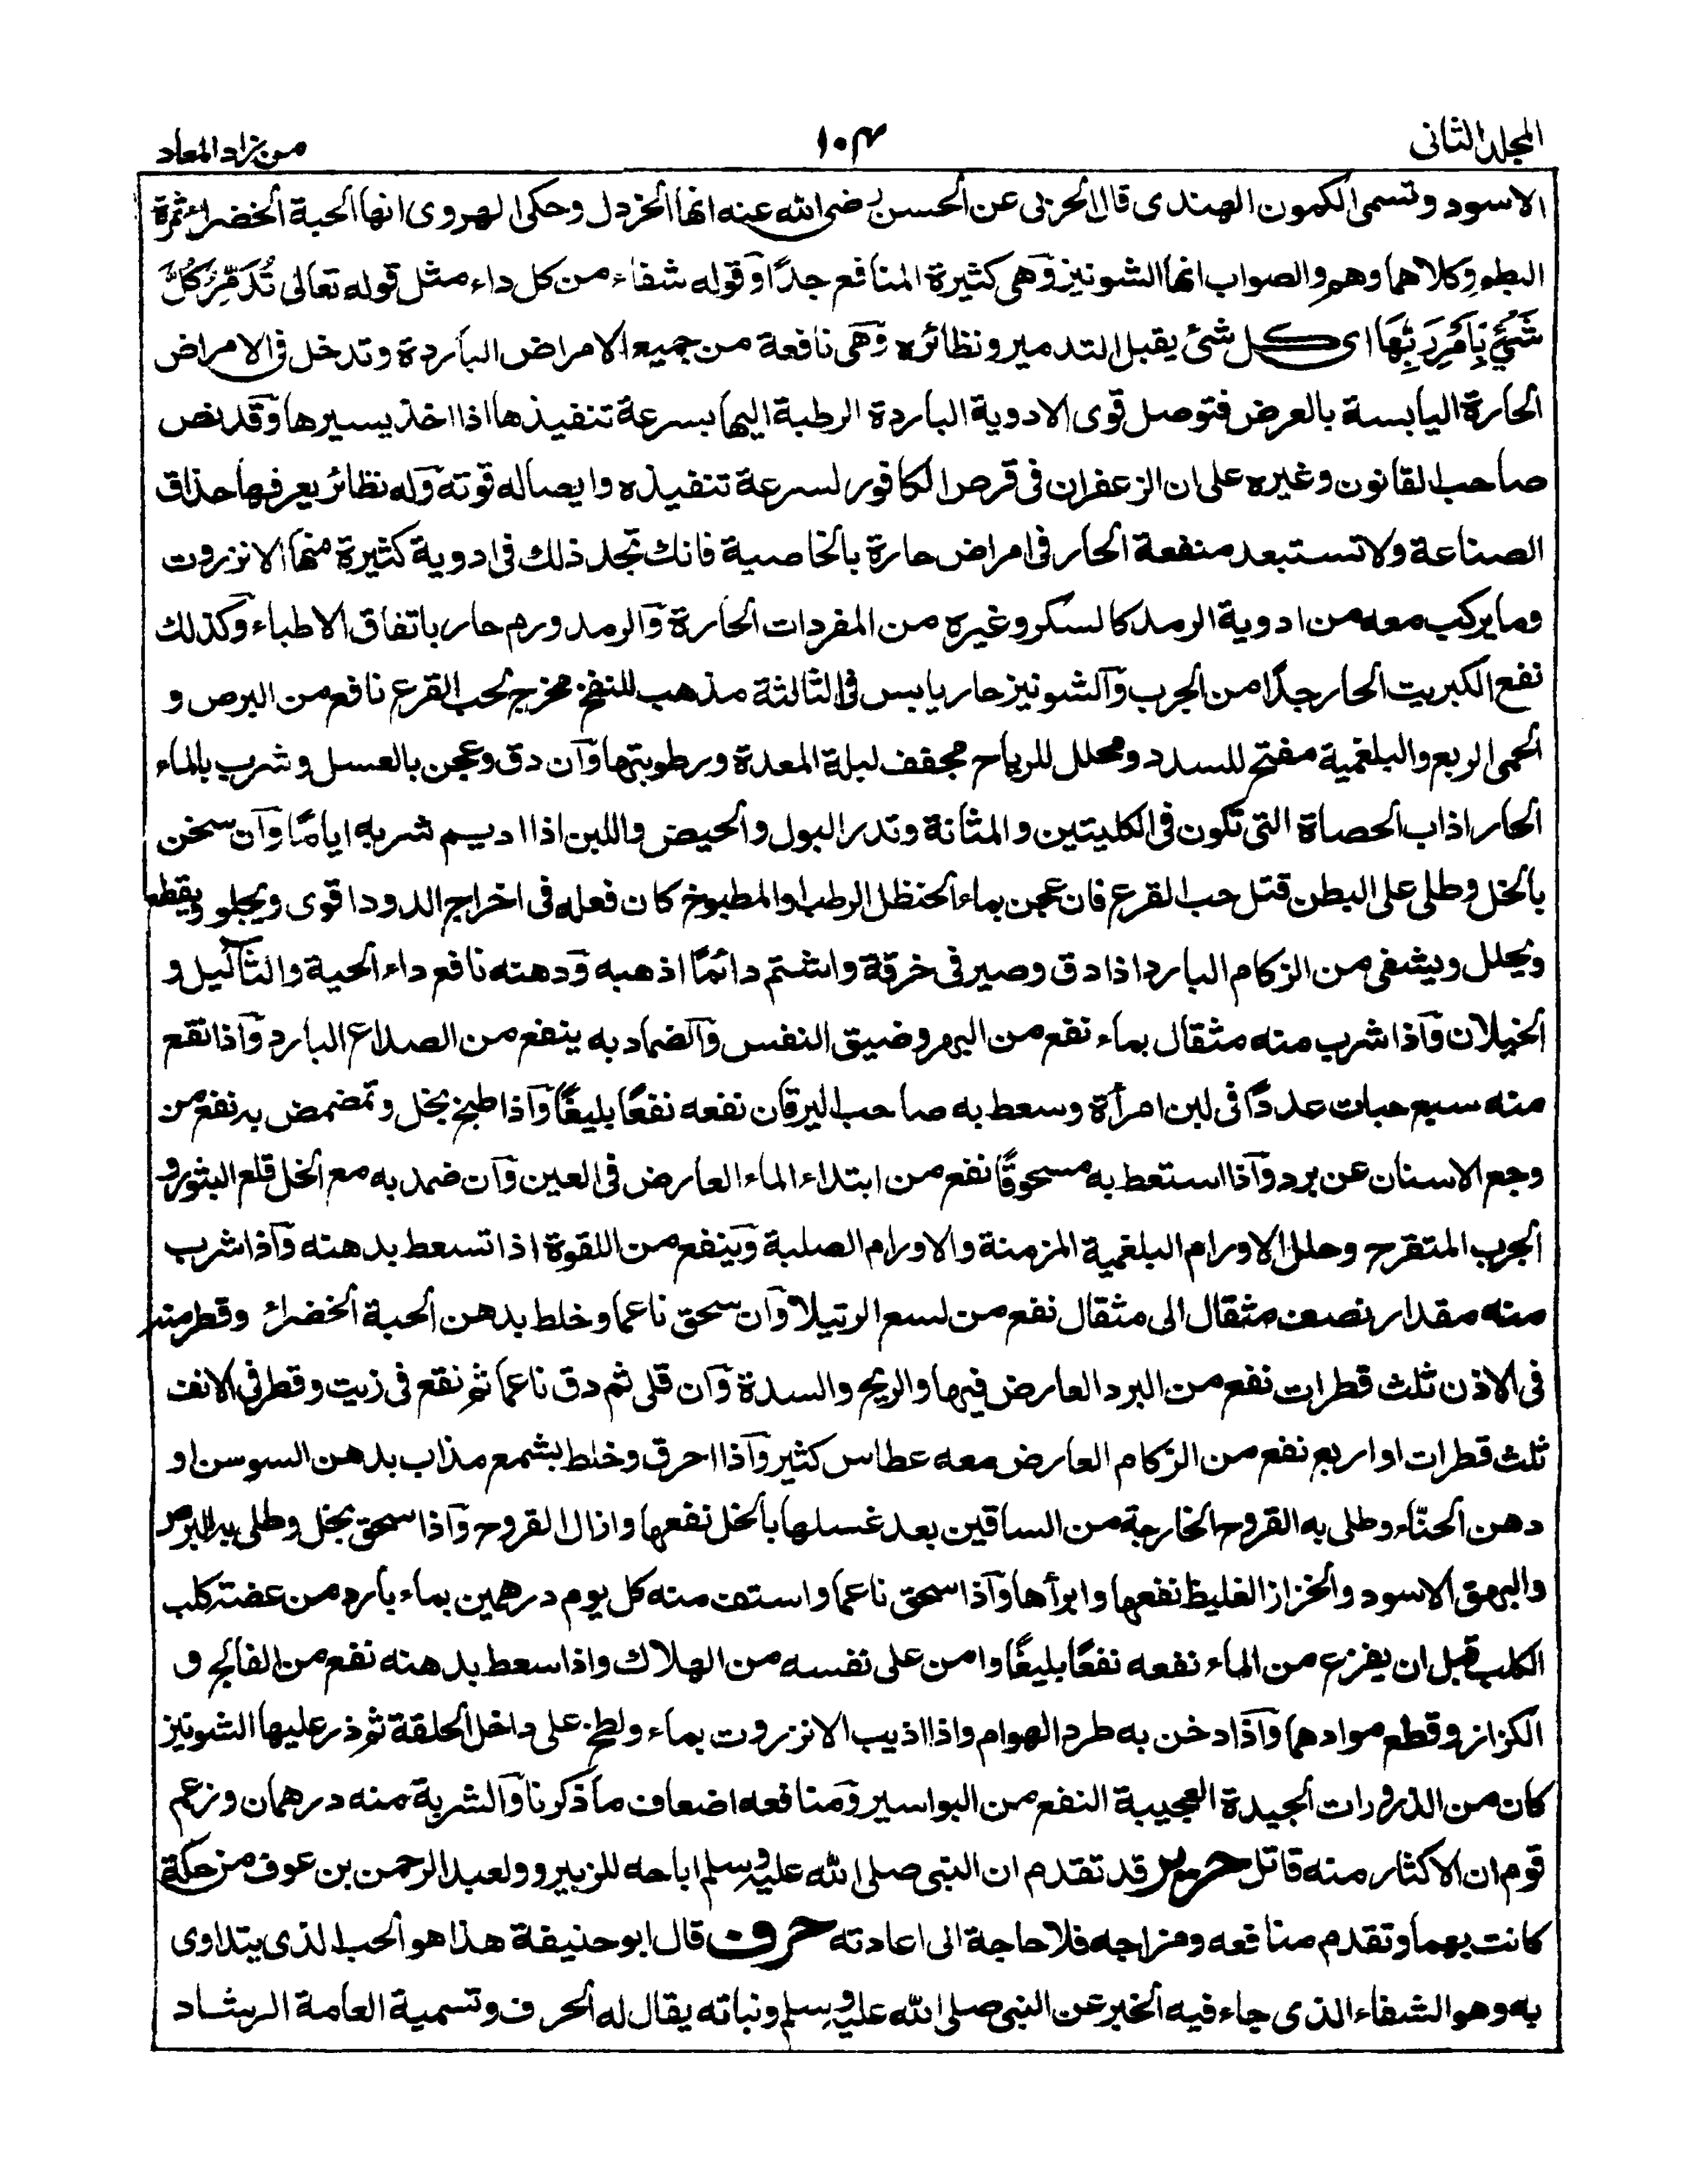 المجلد الثانى
١٠٤
من زاد المعاد
الاسود وتسمى الكمون الهندى قال الحربى عن الحسن رضى الله عنه انها الخردل وحكى الهروى انها الحبة الخضراء ثمرة
البطم وكلاهما وهم والصواب انها الشونيز وهى كثيرة المنافع جدًا وقوله شفاء من كل داء مثل قوله تعالى تُدَمِّرُ كُلَّ
شَىْءٍ بِاَمْرِ رَبِّهَا اى كل شئ يقبل التدمير ونظائره وهى نافعة من جميع الامراض الباردة وتدخل فى الامراض
الحارة اليابسة بالعرض فتوصل قوى الادوية الباردة الرطبة اليها بسرعة تنفيذها اذا اخذ يسيرها وقد نص
صاحب القانون وغيره على ان الزعفران فى قرص الكافور لسرعة تنفيذه وايصاله قوته وله نظائر يعرفها حذاق
الصناعة ولا تستبعد منفعة الحار فى امراض حارة بالخاصية فانك تجد ذلك فى ادوية كثيرة منها الانزروت
وما يركب معه من ادوية الرمد كالسكر وغيره من المفردات الحارة والرمد ورم حار باتفاق الاطباء وكذلك
نفع الكبريت الحار جدًا من الجرب والشونيز حار يابس فى الثالثة مذهب للنفخ مخرج لحب القرع نافع من البرص و
الحمى الربع والبلغمية مفتح للسدد ومحلل للرياح مجفف لبلة المعدة ورطوبتها وان دق وعجن بالعسل وشرب بالماء
الحار اذاب الحصاة التى تكون فى الكليتين والمثانة وتدر البول والحيض واللبن اذا اديم شربه ايامًا وان سخن
بالخل وطلى على البطن قتل حب القرع فان عجن بماء الحنظل الرطب او المطبوخ كان فعله فى اخراج الدود اقوى ويجلو ويقطع
ويحلل ويشفى من الزكام البارد اذا دق وصير فى خرقة واشتم دائمًا اذهبه ودهنه نافع داء الحية والثآليل و
الخيلان واذا شرب منه مثقال بماء نفع من البهر وضيق النفس والضماد به ينفع من الصداع البارد واذا نقع
منه سبع حبات عددًا فى لبن امرأة وسعط به صاحب اليرقان نفعه نفعًا بليغًا واذا طبخ بخل وتمضمض به نفع من
وجع الاسنان عن برد واذا استعط به مسحوقًا نفع من ابتداء الماء العارض فى العين وان ضمد به مع الخل قلع البثور و
الجرب المتقرح وحلل الاورام البلغمية المزمنة والاورام الصلبة وينفع من اللقوة اذا تسعط بدهنه واذا شرب
منه مقدار نصف مثقال الى مثقال نفع من لسع الرتيلا وان سحق ناعما وخلط بدهن الحبة الخضراء وقطر منه
فى الاذن ثلث قطرات نفع من البرد العارض فيها والريح والسدة وان قلى ثم دق ناعما ثم نقع فى زيت وقطر فى الانف
ثلث قطرات او اربع نفع من الزكام العارض معه عطاس كثير واذا احرق وخلط بشمع مذاب بدهن السوسن او
دهن الحنّاء وطلى به القروح الخارجة من الساقين بعد غسلها بالخل نفعها وازال القروح واذا سحق بخل وطلى به البرص
والبهق الاسود والخزاز الغليظ نفعها وابرأها واذا سحق ناعما واستف منه كل يوم درهمين بماء بارد من عضته كلب
الكلب قبل ان يفزع من الماء نفعه نفعًا بليغًا وامن على نفسه من الهلاك واذا سعط بدهنه نفع من الفالج و
الكزاز وقطع موادهما واذا دخن به طرد الهوام واذا اذيب الانزروت بماء ولطخ على داخل الحلقة ثم ذر عليها الشونيز
كان من الذرورات الجيدة العجيبة النفع من البواسير ومنافعه اضعاف ما ذكرنا والشربة منه درهمان وزعم
قوم ان الاكثار منه قاتل حرير قد تقدم ان النبى صلى الله عليه وسلم اباحه للزبير ولعبد الرحمن بن عوف من حكة
كانت بهما وتقدم منافعه ومزاجه فلا حاجة الى اعادته حرف قال ابو حنيفة هذا هو الحب الذى يتداوى
به وهو الشفاء الذى جاء فيه الخبر عن النبى صلى الله عليه وسلم ونباته يقال له الحرف وتسمية العامة الرشاد